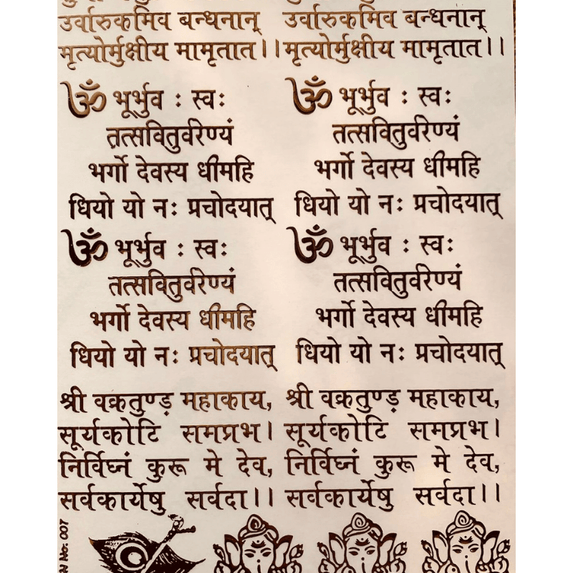 उर्वारुकमिव बन्धनान् उर्वारुकमिव बन्धनान्
मृत्योर्मुक्षीय मामृतात।। मृत्योर्मुक्षीय मामृतात।।
ॐ भूर्भुव : स्वः ॐ भूर्भुव : स्वः
तत्सवितुर्वरेण्यं तत्सवितुर्वरेण्यं
भर्गो देवस्य धीमहि भर्गो देवस्य धीमहि
धियो यो नः प्रचोदयात् धियो यो नः प्रचोदयात्
ॐ भूर्भुव : स्वः ॐ भूर्भुव : स्वः
तत्सवितुर्वरेण्यं तत्सवितुर्वरेण्यं
भर्गो देवस्य धीमहि भर्गो देवस्य धीमहि
धियो यो नः प्रचोदयात् धियो यो नः प्रचोदयात्
श्री वक्रतुण्ड़ महाकाय, श्री वक्रतुण्ड़ महाकाय,
सूर्यकोटि समप्रभ। सूर्यकोटि समप्रभ।
निर्विघ्नं कुरू मे देव, निर्विघ्नं कुरू मे देव,
सर्वकार्येषु सर्वदा।। सर्वकार्येषु सर्वदा।।
No: 007